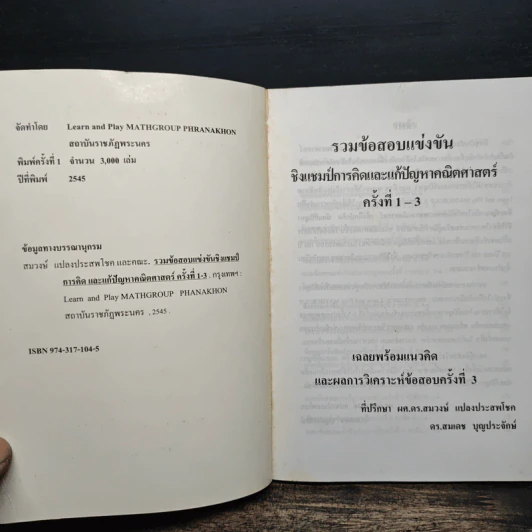 จัดทำโดย Learn and Play MATHGROUP PHRANAKHON
สถาบันราชภัฏพระนคร
พิมพ์ครั้งที่ 1 จำนวน 3,000 เล่ม
ปีที่พิมพ์ 2545
ข้อมูลทางบรรณานุกรม
สมวงษ์ แปลงประสพโชค และคณะ. รวมข้อสอบแข่งขันชิงแชมป์
การคิด และแก้ปัญหาคณิตศาสตร์ ครั้งที่ 1-3 . กรุงเทพฯ :
Learn and Play MATHGROUP PHANAKHON
สถาบันราชภัฏพระนคร , 2545 .
ISBN 974-317-104-5
รวมข้อสอบแข่งขัน
ชิงแชมป์การคิดและแก้ปัญหาคณิตศาสตร์
ครั้งที่ 1 – 3
เฉลยพร้อมแนวคิด
และผลการวิเคราะห์ข้อสอบครั้งที่ 3
ที่ปรึกษา ผศ.ดร.สมวงษ์ แปลงประสพโชค
ดร.สมเดช บุญประจักษ์